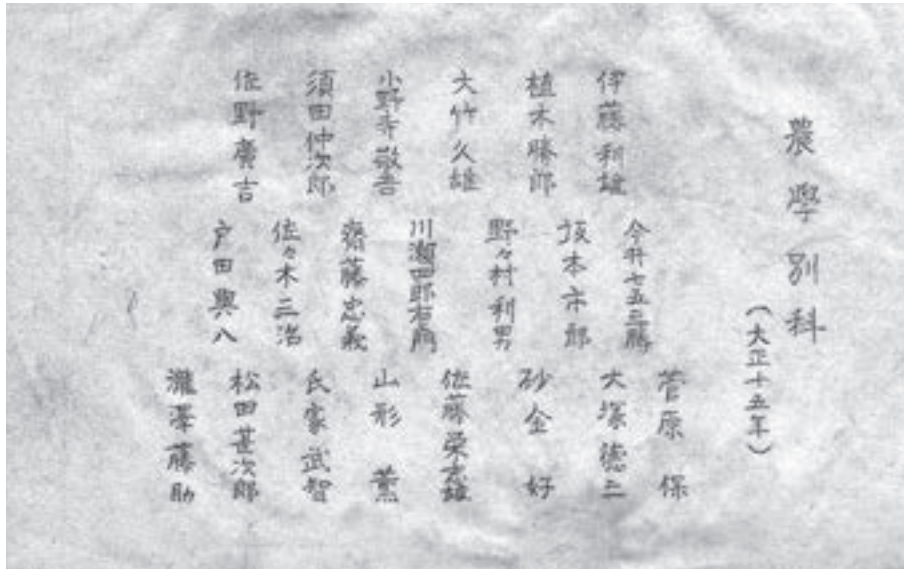 農學別科
(大正十五年)
伊藤利雄
植木勝郎
大竹久雄
小野寺敬吾
須田仲次郎
佐野廣吉
今井七五三勝
坂本市郎
野々村利男
川瀬四郎右衛門
齋藤忠義
佐々木三治
戸田與八
菅原保
大塚徳二
砂金好
佐藤榮雄
山形薫
氏家武智
松田甚次郎
瀧澤藤助